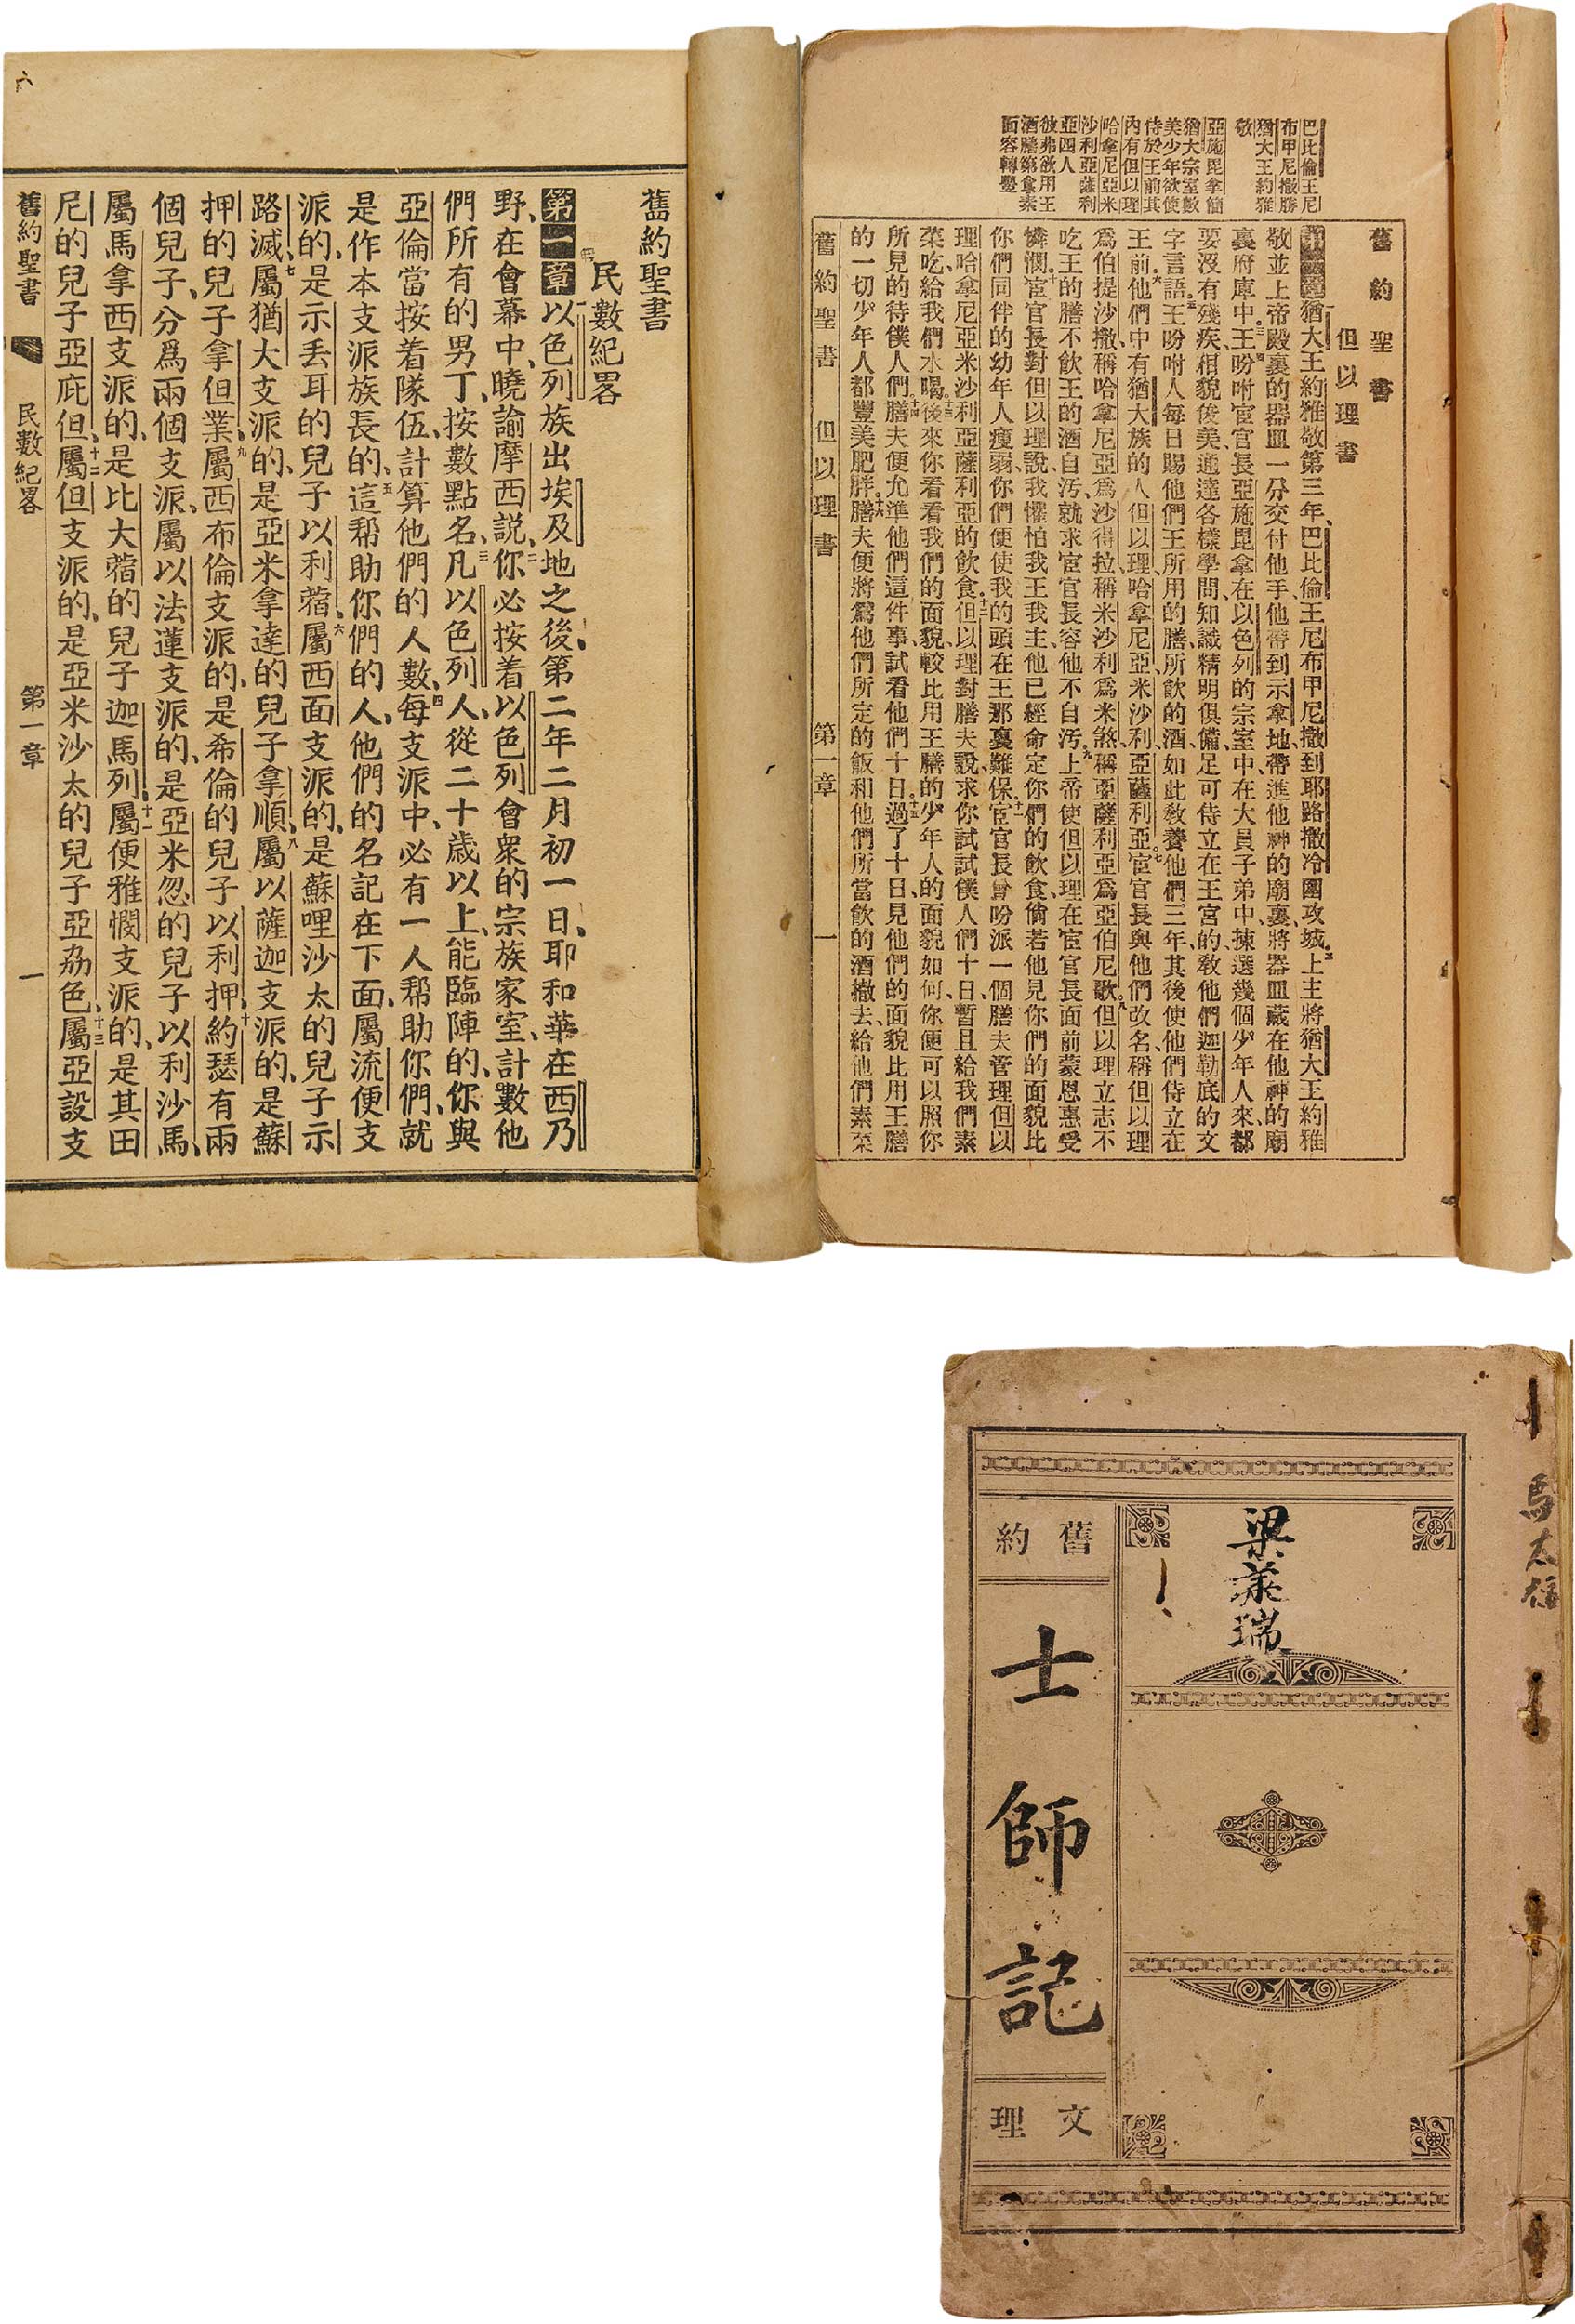 六
舊約聖書
民數紀畧
第一章以色列族出埃及地之後、第二年二月初一日、耶和華在西乃
野、在會幕中、曉諭摩西説、二你必按着以色列會衆的宗族家室、計數他
們所有的男丁、按數點名、三凡以色列人、從二十歲以上、能臨陣的、你與
亞倫當按着隊伍、計算他們的人數、四每支派中、必有一人帮助你們、就
是作本支派族長的、五這帮助你們的人、他們的名記在下面、屬流便支
派的、是示丢耳的兒子以利蓿、六屬西面支派的、是蘇哩沙太的兒子示
路滅、七屬猶大支派的、是亞米拿達的兒子拿順、八屬以薩迦支派的、是蘇
押的兒子拿但業、九屬西布倫支派的、是希倫的兒子以利押、十約瑟有兩
個兒子、分爲兩個支派、屬以法蓮支派的、是亞米忽的兒子以利沙馬、
屬馬拿西支派的、是比大蓿的兒子迦馬列、十一屬便雅憫支派的、是其田
尼的兒子亞庇但、十二屬但支派的、是亞米沙太的兒子亞劦色、十三屬亞設支
舊約聖書 民數紀畧 第一章 一
巴比倫王尼
布甲尼撒勝
猶大王約雅
敬
亞施毘拿簡
猶大宗室數
美少年欲使
侍於王前其
內有但以理
哈拿尼亞米
沙利亞薩利
亞四人
彼弗欲用王
酒膳第食素
面容轉豐
舊約聖書
但以理書
第一章猶大王約雅敬第三年、巴比倫王尼布甲尼撒到耶路撒冷圍攻城、二上主將猶大王約雅
敬並上帝殿裏的器皿一分交付他手、他帶到示拿地、帶進他神的廟裏、將器皿藏在他神的廟
裏府庫中、三王吩咐宦官長亞施毘拿在以色列的宗室中、在大員子弟中、揀選幾個少年人來、四都
要沒有殘疾、相貌俊美、通達各樣學問、知識精明俱備、足可侍立在王宮的、教他們迦勒底的文
字言語、五王吩咐人每日賜他們王所用的膳、所飲的酒、如此教養他們三年、其後使他們侍立在
王前、六他們中有猶大族的人但以理、哈拿尼亞、米沙利、亞薩利亞、七宦官長與他們改名、稱但以理
爲伯提沙撒、稱哈拿尼亞爲沙得拉、稱米沙利爲米煞、稱亞薩利亞爲亞伯尼歌、八但以理立志不
吃王的膳、不飲王的酒自汚、就求宦官長容他不自汚、九上帝使但以理在宦官長面前蒙恩惠受
憐憫、十宦官長對但以理説、我懼怕我王我主、他已經命定你們的飲食、倘若他見你們的面貌比
你們同伴的幼年人瘦弱、你們便使我的頭在王那裏難保、十一宦官長曾吩派一個膳夫管理但以
理哈拿尼亞米沙利亞薩利亞的飲食、十二但以理對膳夫説、求你試試僕人們十日、暫且給我們素
菜吃、給我們水喝、十三後來你看看我們的面貌、較比用王膳的少年人的面貌如何、你便可以照你
所見的待僕人們、十四膳夫便允準他們這件事、試看他們十日、十五過了十日、見他們的面貌比用王膳
的一切少年人都豐美肥胖、十六膳夫便將爲他們所定的飯和他們所當飲的酒撤去、給他們素菜
舊約聖書 但以理書 第一章 一
馬太
梁
瑞
舊約
士師記
文理